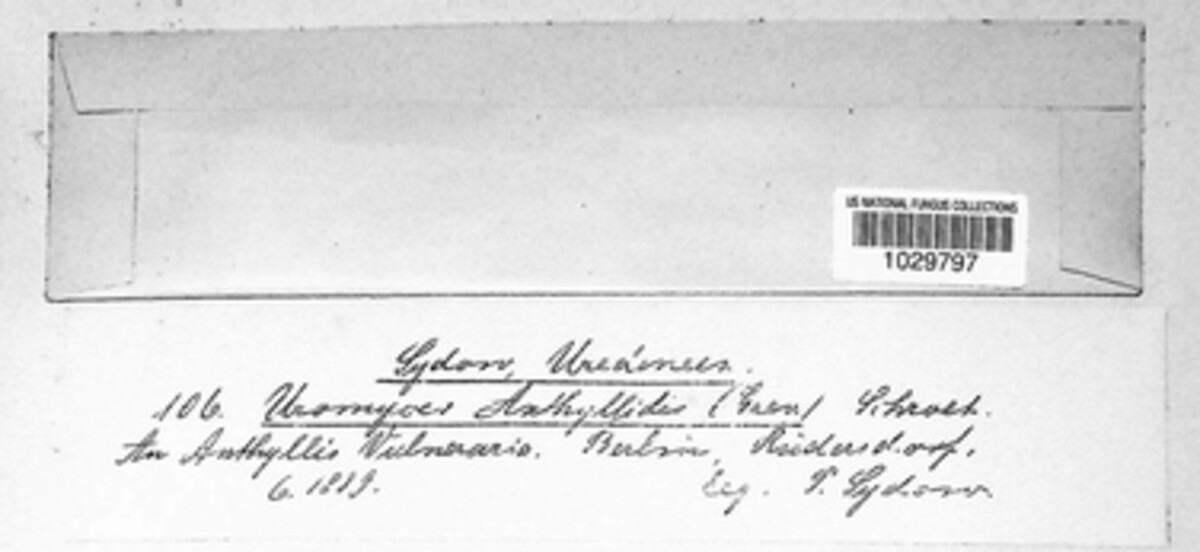 US NATIONAL FUNGUS COLLECTIONS
1029797
Sydow, Uredineen.
106. Uromyces Anthyllidis (Grev) Schroet.
An Anthyllis Vulneraria. Berlin, Rüdersdorf.
6. 1889. Leg. P. Sydow.